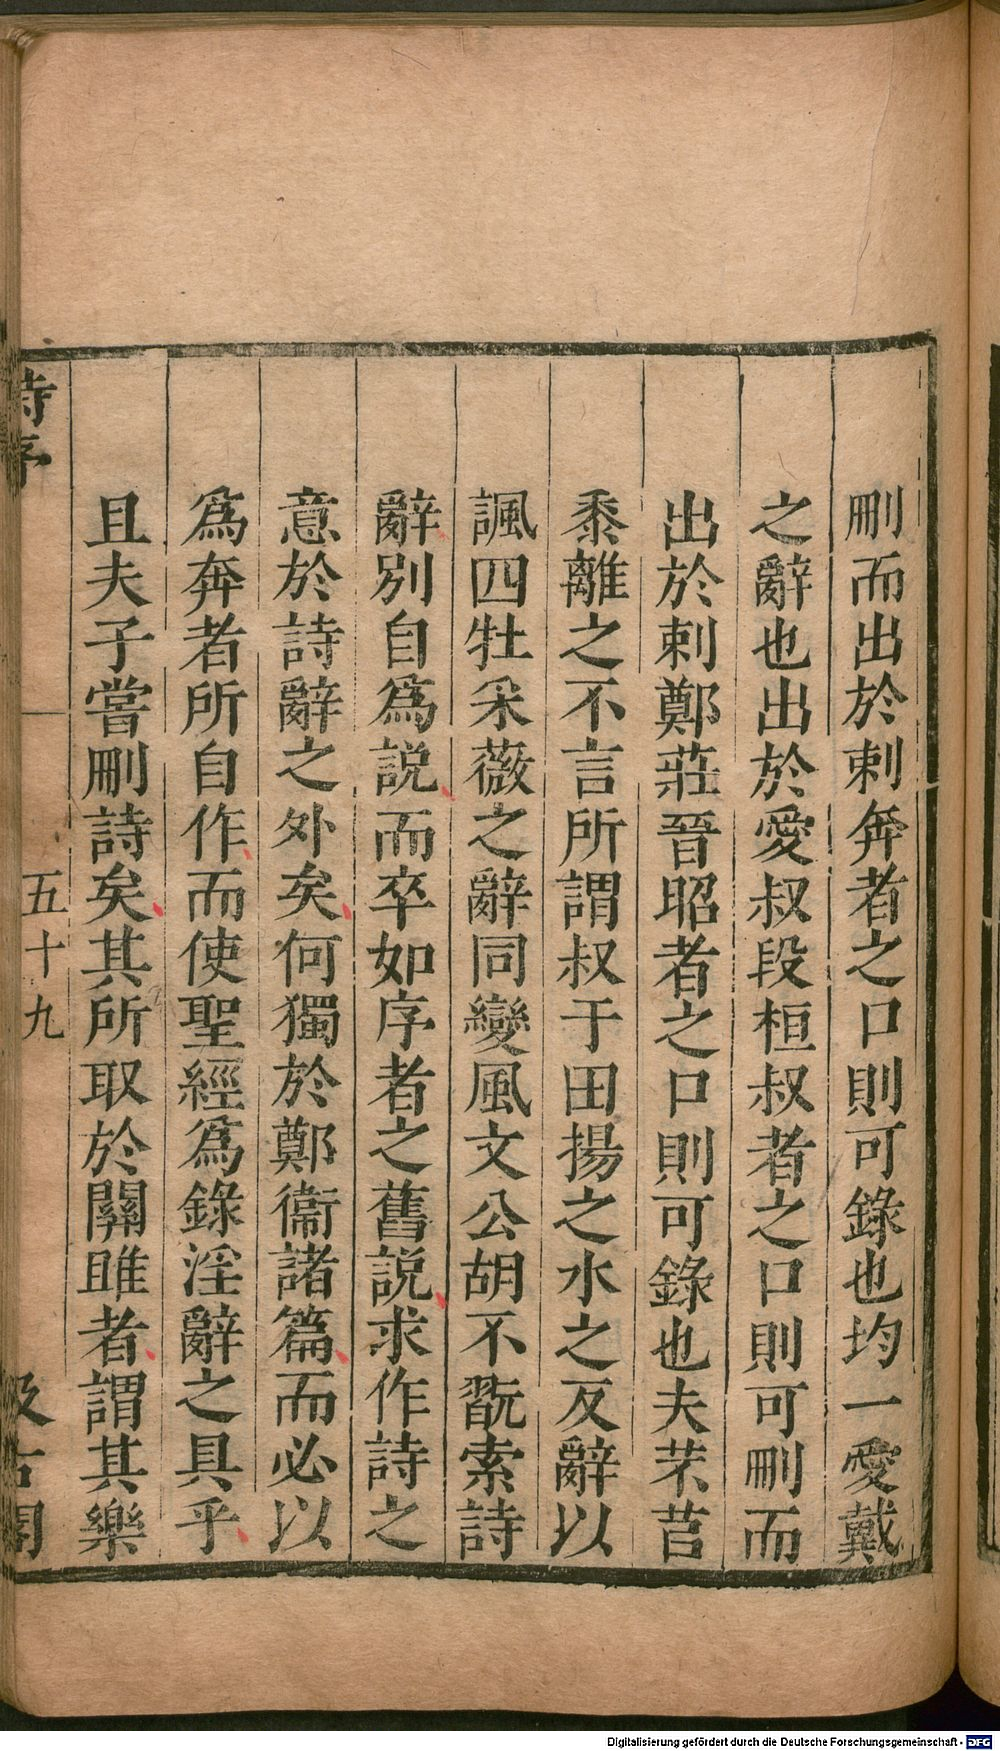 刪而出於刺奔者之口則可錄也均一愛戴
之辭也出於愛叔段桓叔者之口則可刪而
出於刺鄭莊晉昭者之口則可錄也夫芣苢
黍離之不言所謂叔于田揚之水之反辭以
諷四牡采薇之辭同變風文公胡不翫索詩
辭別自爲説而卒如序者之舊説求作詩之
意於詩辭之外矣何獨於鄭衞諸篇而必以
爲奔者所自作而使聖經爲錄淫辭之具乎
且夫子嘗刪詩矣其所取於關雎者謂其樂
詩序 五十九 汲古閣
Digitalisierung gefördert durch die Deutsche Forschungsgemeinschaft - DFG